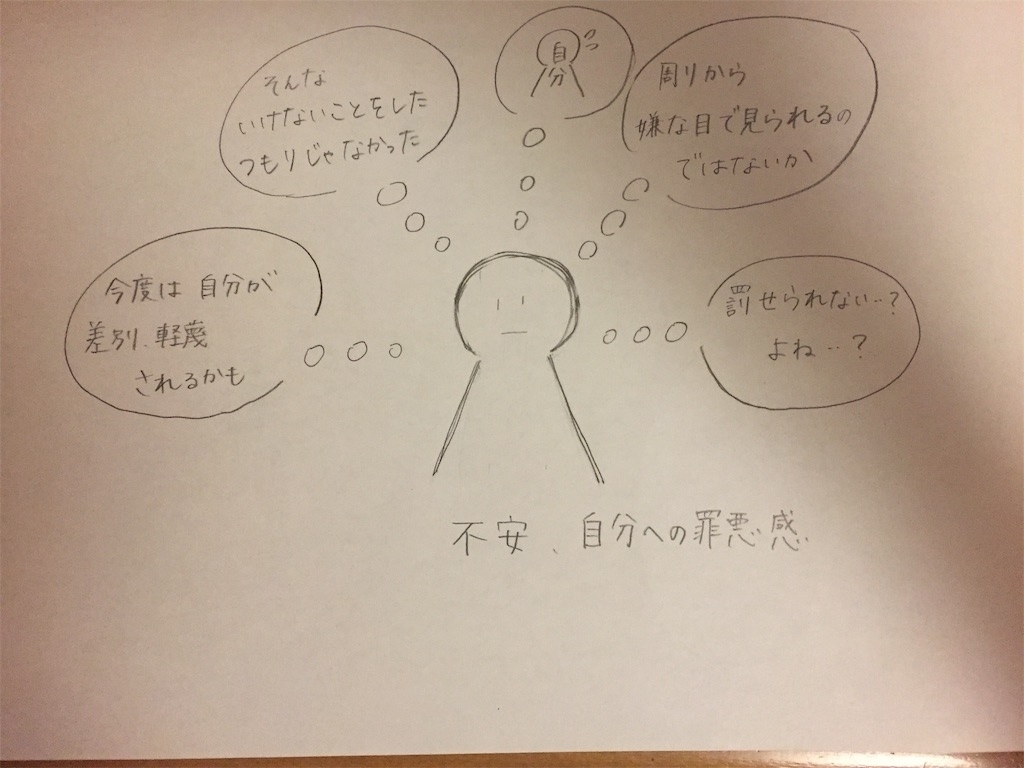 そんな
いけないことをした
つもりじゃなかった
自
分
周りから
嫌な目で見られるの
ではないか
今度は自分が
差別、軽蔑
されるかも
罰せられない‥?
よね‥?
不安、自分への罪悪感